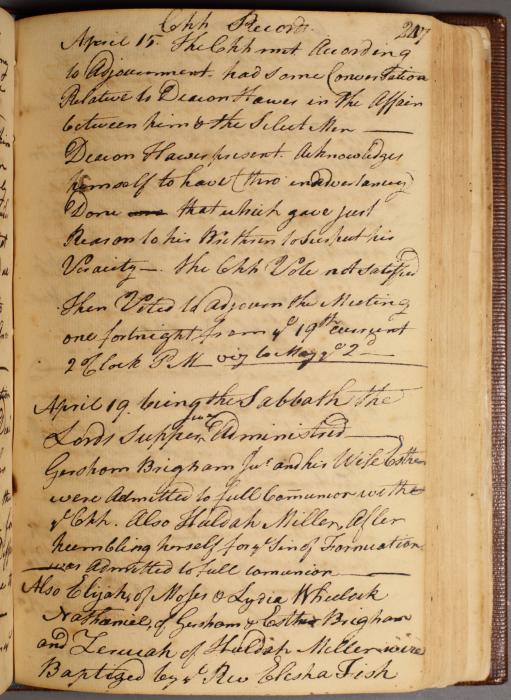 Chh Records. 247
April 15. The Chh met According
to Adjournment. had some Conversation
Relative to Deacon Hawes in the Affair
between him & the Select Men —
Deacon Hawes present. Acknowledges
himself to have (thro inadvertancy)
Done that which gave just
Reason to his Brethren to Suspect his
Veracity —. the Chh Vote not satisfied
Then Voted to adjourn the Meeting
one fortnight from ye 19th current
2 oClock PM viz to May ye 2d —
April 19. being the Sabbath the
Lords Supper was Administred —
Gershom Brigham Junr and his Wife Esther
were Admitted to full Comunion with
ye Chh. Also Huldah Miller, After
humbling herself for ye Sin of Fornication
was admitted to full comunion —
Also Elijah, of Moses & Lydia Wheelock
Nathaniel, of Gershom & Esther Brigham
and Zeruiah of Huldah Miller were
Baptized by ye Rev Elisha Fish